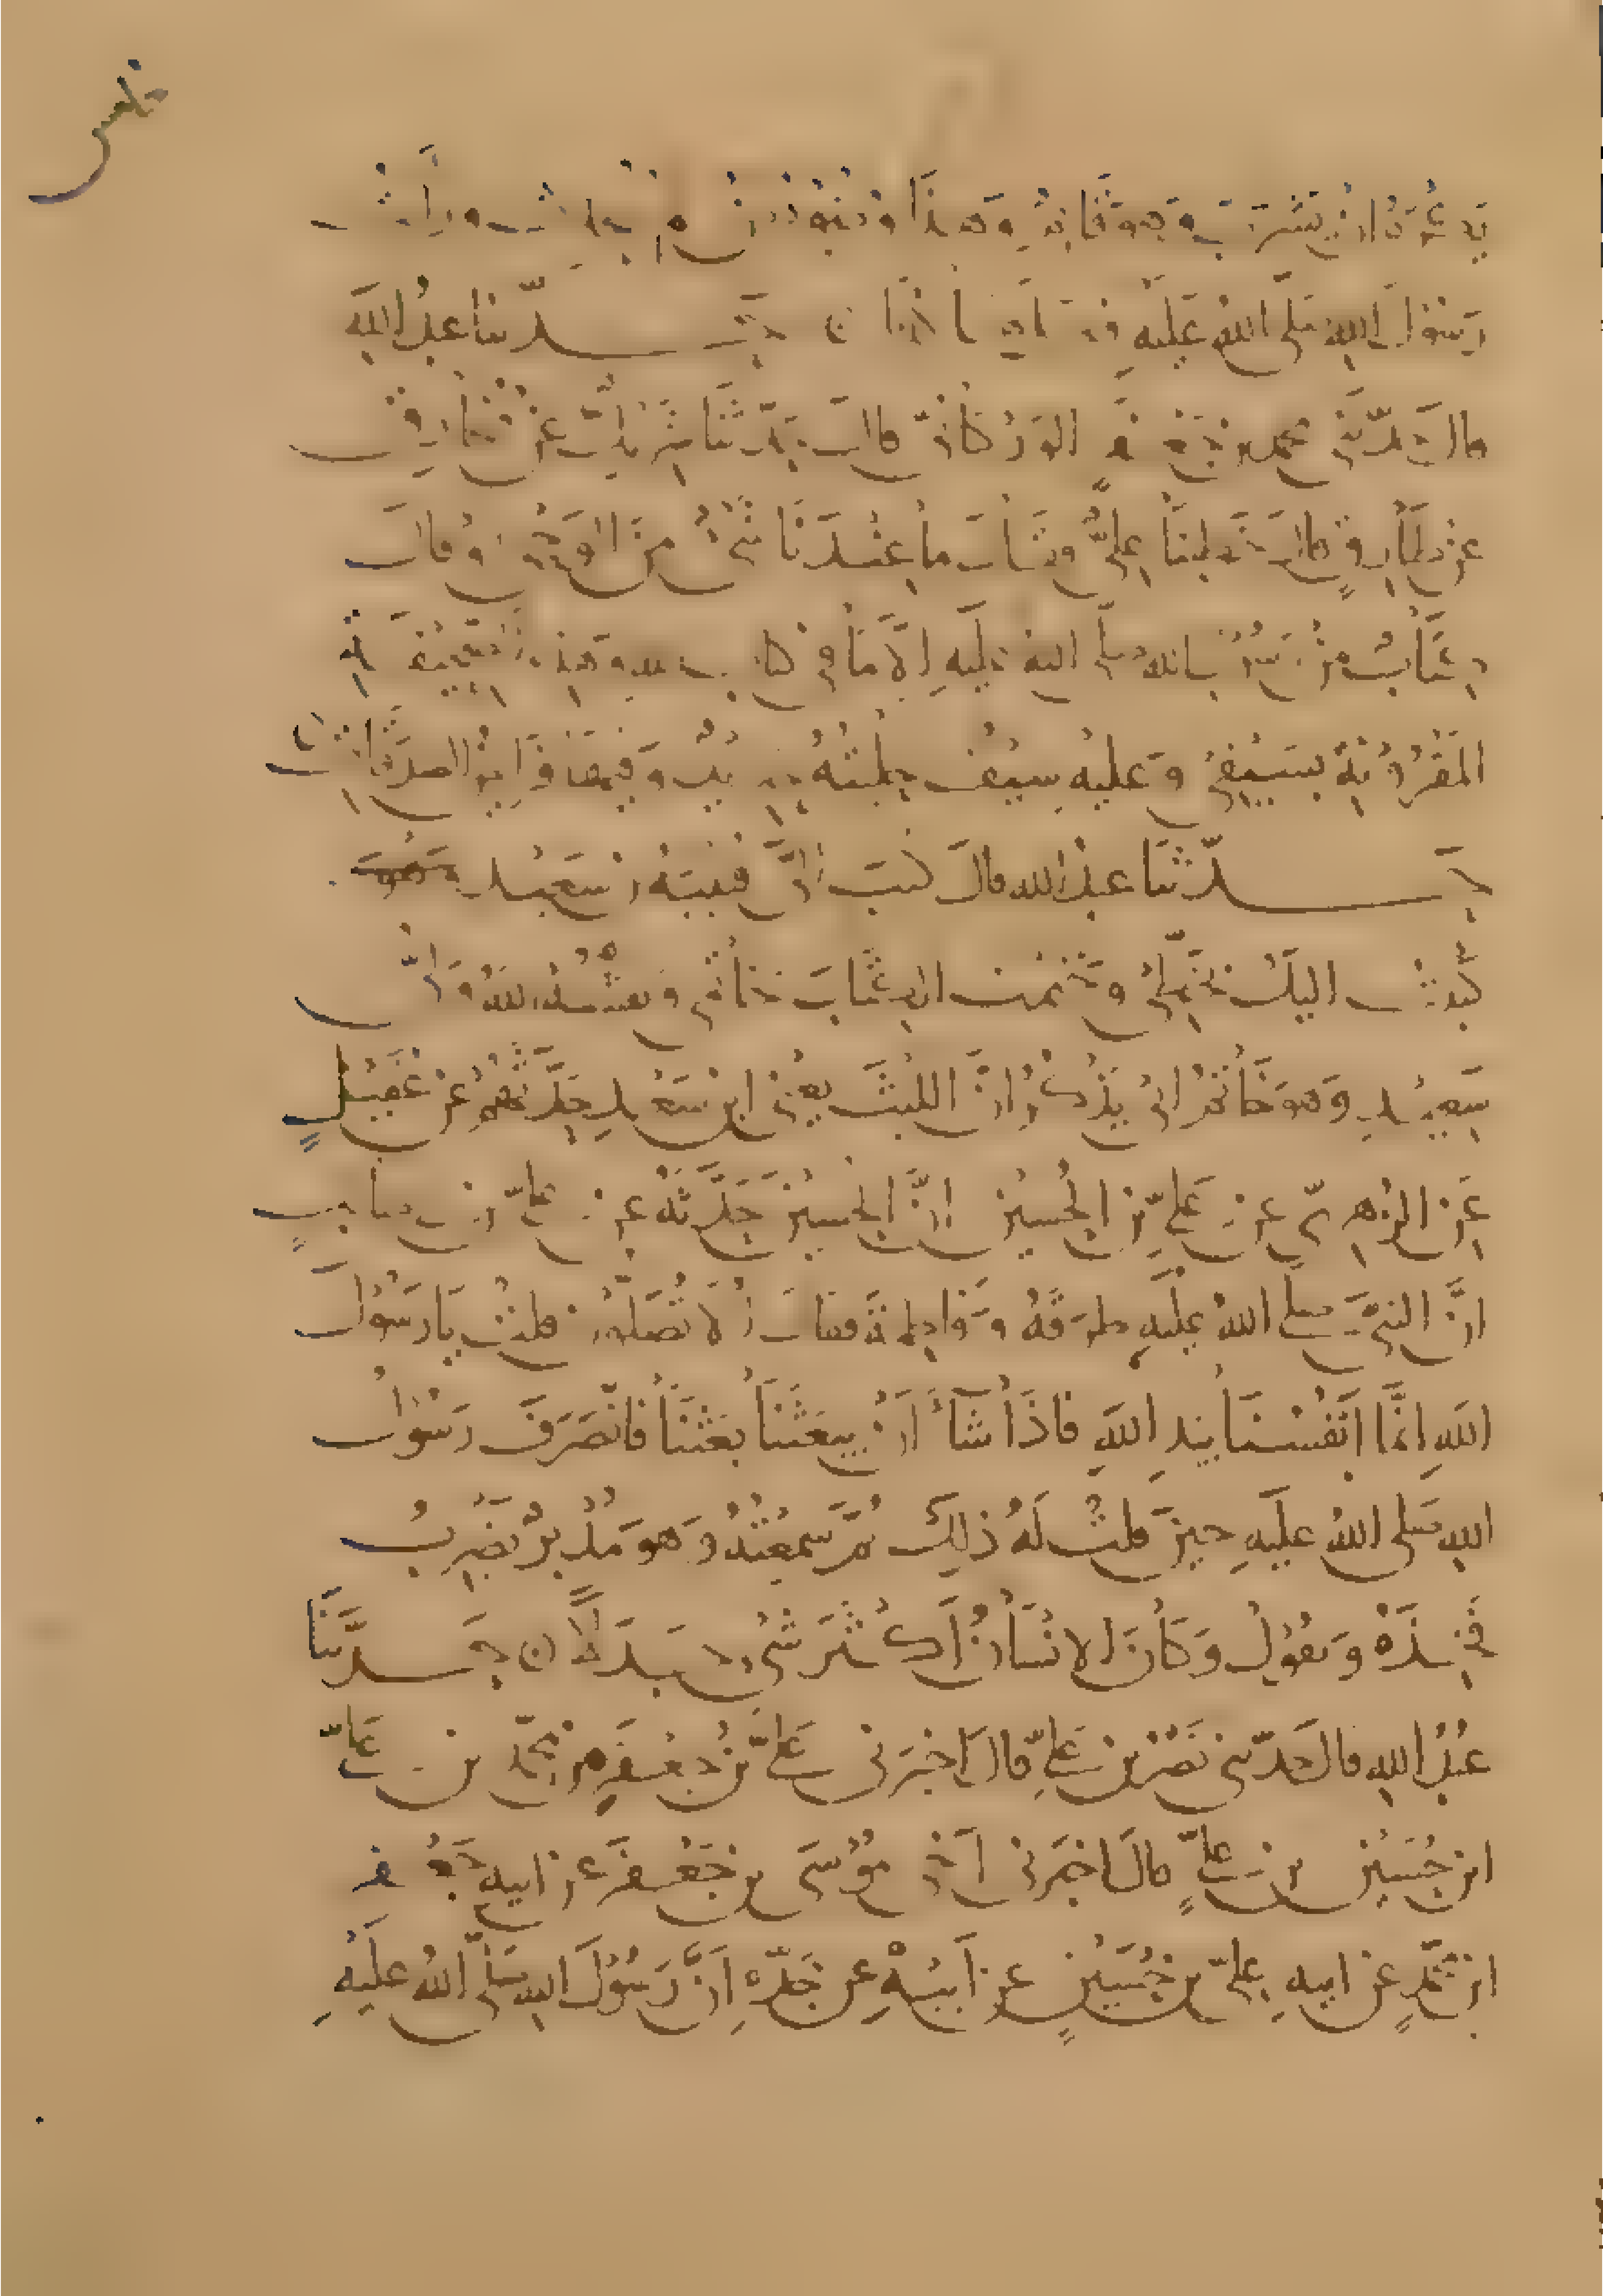 ان يشرب وهو قائم وهذا وضوء من لم يحدث ورأيت
رسول الله صلى الله عليه حدثنا عبد الله
قال حدثني محمد بن الوركاني قال حدثنا شريك عن مخارق
عن طارق قال خطبنا علي فقال ما عندنا شيء من الوحي او قال
كتاب من رسول الله صلى الله عليه الا ما في كتاب الله وهذه الصحيفة
المقرونة بسيفي وعليه سيف حليته حديد وفيها فرائض الصدقات
حدثنا عبد الله قال كتب الي قتيبة بن سعيد
كتبت اليك بخطي وختمت الكتاب بخاتمي ونقشه الله ولي
سعيد وهو خاتم ابي يذكر ان الليث يعني ابن سعد حدثهم عن عقيل
عن الزهري عن علي بن الحسين ان الحسين حدثه عن علي بن طالب
ان النبي صلى الله عليه طرقه وفاطمة فقال الا تصلون فقلت يا رسول
الله انما انفسنا بيد الله فاذا شاء ان يبعثنا بعثنا فانصرف رسول
الله صلى الله عليه حين قلت له ذلك ثم سمعته وهو مدبر يضرب
فخذه ويقول وكان الانسان اكثر شيء جدلا حدثنا
عبد الله قال حدثني نصر بن علي قال اخبرني علي بن جعفر بن محمد بن علي
ابن حسين بن علي قال اخبرني اخي موسى بن جعفر عن ابيه جعفر
ابن محمد عن ابيه علي بن حسين عن ابيه عن جده ان رسول الله صلى الله عليه